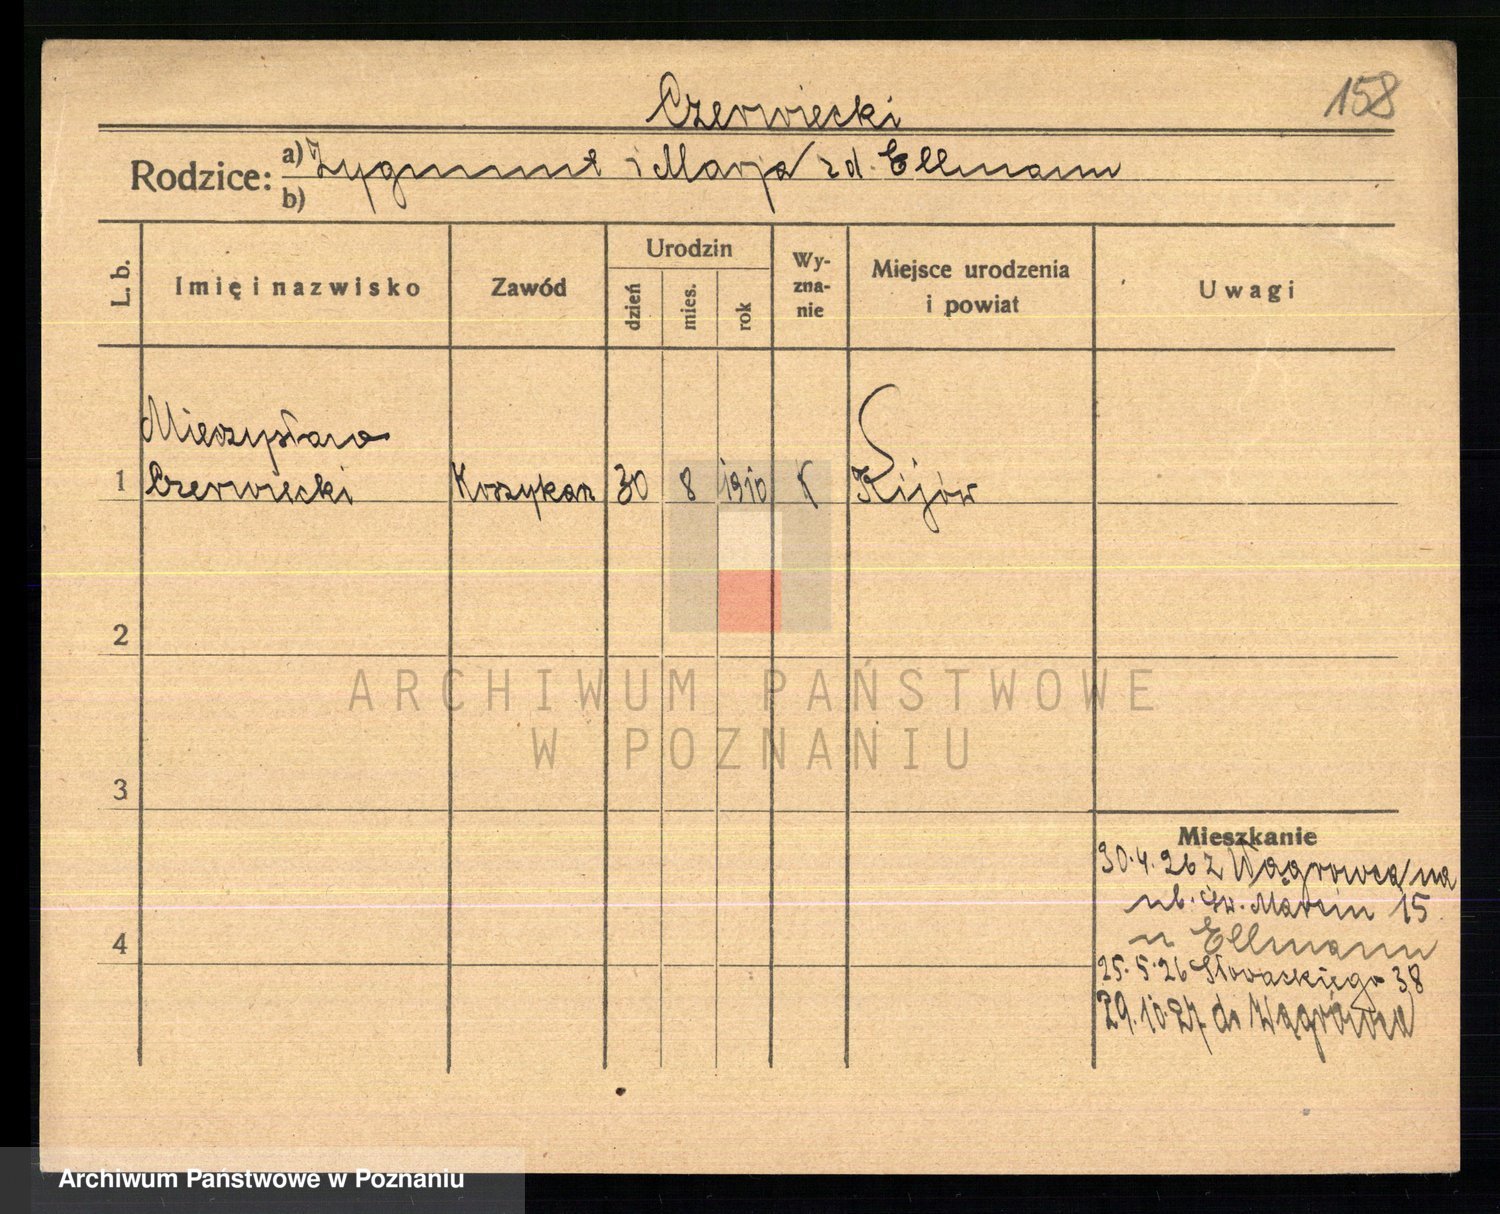 158
Czerwiecki
Rodzice: a) Zygmunt i Marja zd. Ellmann
b)
L. b. Imię i nazwisko Zawód Urodzin dzień mies. rok Wy-zna-nie Miejsce urodzenia i powiat Uwagi
Mieczysław
1 Czerwiecki Koszykarz 30 8 1910 k Kijów
2
ARCHIWUM PAŃSTWOWE
W POZNANIU
3
Mieszkanie
30.4.26 z Wągrowca na
ul. Św. Marcin 15
4
u Ellmann
25.5.26 Słowackiego 38
29.10.27 do Wągrowca
Archiwum Państwowe w Poznaniu